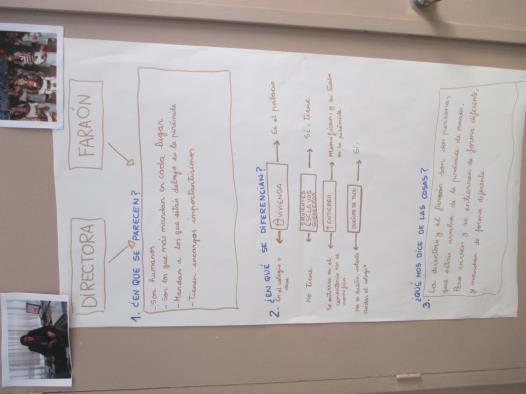 DIRECTORA FARAÓN
1. ¿EN QUE SE PARECEN?
- Son humanos
- Son los que más mandan en cada lugar
- Mandan a los que están debajo en la pirámide
- Tienen encargos importantísimos
2. ¿EN QUÉ SE DIFERENCIAN?
En el colegio o casa
VIVIENDA
En el palacio
No tiene
SIRVIENTES
ESCLAVOS
Sí tiene
Se entierra en el cementerio no se momifica
ENTIERRO
Momifican y se entierra en la pirámide
Sí
¿QUÉ NOS DICE DE LAS COSAS?
3.
La directora y el faraón son dos personas,
que están arriba de la pirámide de mando.
Pero nacen y se entierran de forma diferente,
y mandan de forma diferente